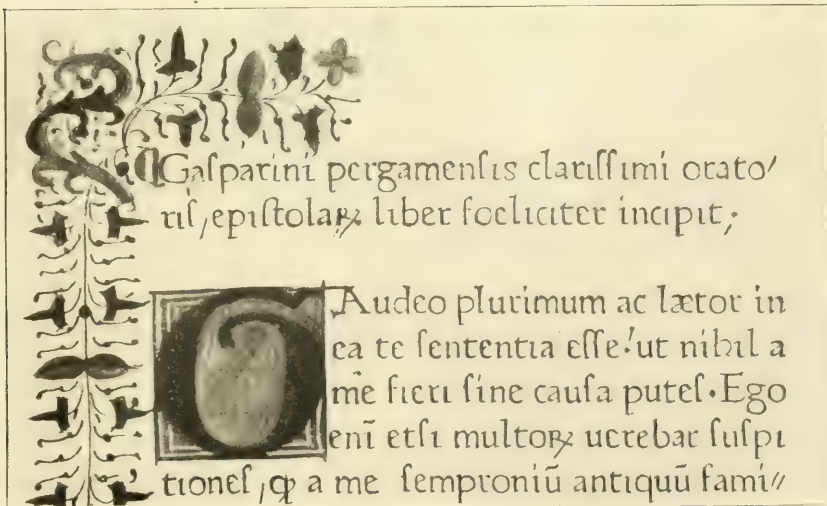 ¶Gaſparini pergamenſis clariſſimi orato/
riſ, epiſtolaꝝ liber foeliciter incipit;
GAudeo plurimum ac lætor in
ea te ſententia eſſe! ut nihil a
me fieri ſine cauſa puteſ. Ego
eni᷈ etſi multoꝝ uerebar ſuſpi
tioneſ, ꝙ a me ſemproniū antiquū fami//